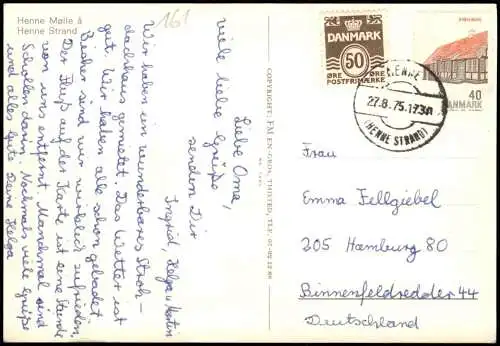 Henne Mølle å
Henne Strand
161
Liebe Oma,
viele liebe Grüße
senden Dir
Ingrid, Helga u. Martin
Wir haben ein wunderbares Stroh-
dachhaus gemietet. Das Wetter ist
gut. Wir haben alle schon gebadet.
Bisher sind wir wirklich zufrieden.
Der Fluß auf der Karte ist eine Stunde
von uns entfernt. Manchmal sind
Schollen darin. Nochmals viele Grüße
und alles Gute Deine Helga
COPYRIGHT: FM EN-GROS, THISTED, TLF.
DANMARK
50
ØRE ØRE
POSTFRIMÆRKE
40
DANMARK
HENNE
27.8.75.1730
(HENNE STRAND)
Frau
Emma Fellgiebel
205 Hamburg 80
Binnenfeldredder 44
Deutschland